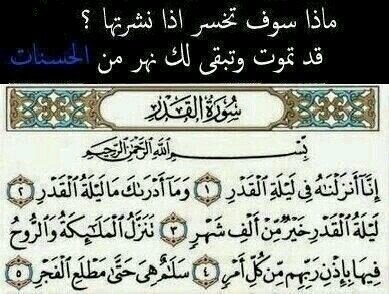 ماذا سوف تخسر اذا نشرتها ؟
قد تموت وتبقى لك نهر من الحسنات
سُورَةُ القَدْرِ
بِسْمِ اللَّهِ الرَّحْمَٰنِ الرَّحِيمِ
إِنَّا أَنزَلْنَٰهُ فِي لَيْلَةِ الْقَدْرِ ١ وَمَا أَدْرَىٰكَ مَا لَيْلَةُ الْقَدْرِ ٢
لَيْلَةُ الْقَدْرِ خَيْرٌ مِّنْ أَلْفِ شَهْرٍ ٣ تَنَزَّلُ الْمَلَٰٓئِكَةُ وَالرُّوحُ
فِيهَا بِإِذْنِ رَبِّهِم مِّن كُلِّ أَمْرٍ ٤ سَلَٰمٌ هِيَ حَتَّىٰ مَطْلَعِ الْفَجْرِ ٥